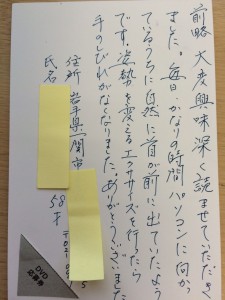 前略 大変興味深く読ませていただき
ました。毎日、かなりの時間パソコンに向かっ
ているうちに自然に首が前に出ていたよう
です。姿勢を変えるエクササイズを行ったら
手のしびれがなくなりました。ありがとうございました
住所 岩手県一関市
氏名 58才
DVD